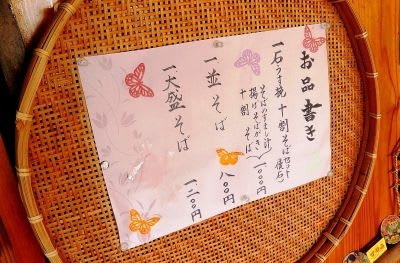 お品書き
一石うす挽 十割そばセット
そばのすまし汁
揚げそばがき
十割 そば
一、〇〇〇円
一並 そば 八〇〇円
一大盛 そば 一二〇〇円